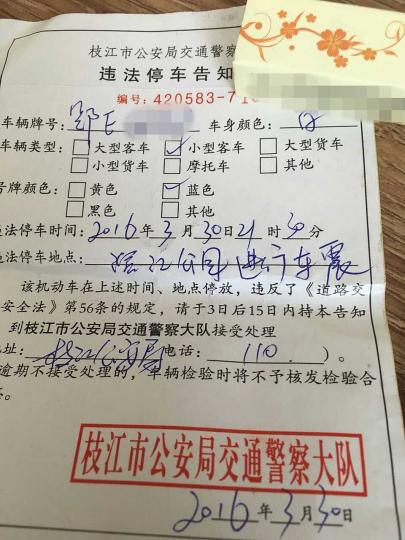 枝江市公安局交通警察
违法停车告知
编号:420583-71
车辆牌号:鄂E 车身颜色:白
车辆类型: 大型客车 小型客车 大型货车
小型货车 摩托车 其他
号牌颜色: 黄色 蓝色
黑色 其他
违法停车时间:2016年3月30日21时30分
违法停车地点:滨江公园进行车震
该机动车在上述时间、地点停放,违反了《道路交
安全法》第56条的规定,请于3日后15日内持本告知
到枝江市公安局交通警察大队接受处理
地址:枝江公安局 电话:110 )。
逾期不接受处理的,车辆检验时将不予核发检验合
枝江市公安局交通警察大队
2016年3月30